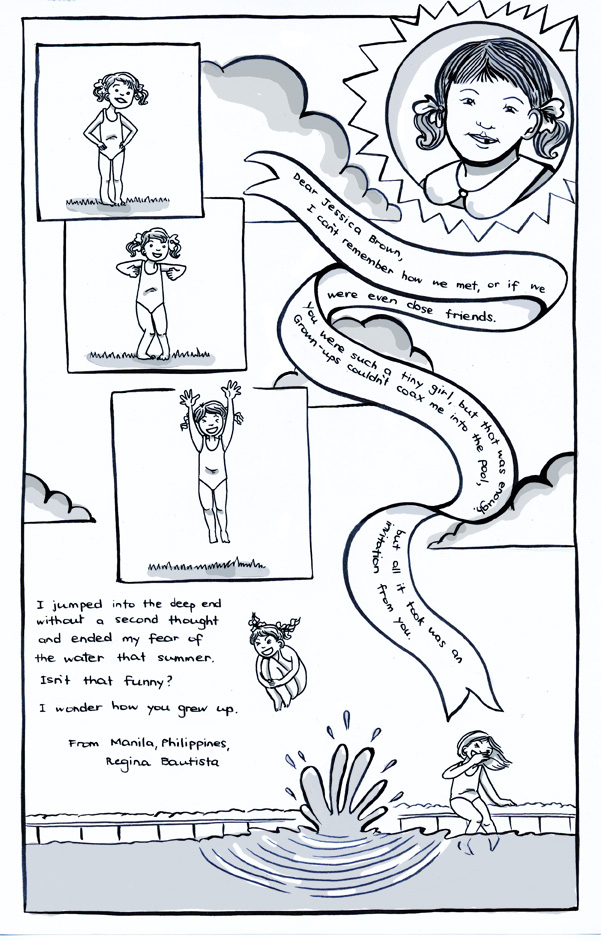 Dear Jessica Brown,
I can't remember how we met, or if we
were even close friends.
You were such a tiny girl, but that was enough.
Grown-ups couldn't coax me into the pool,
but all it took was an
invitation from you.
I jumped into the deep end
without a second thought
and ended my fear of
the water that summer.
Isn't that funny?
I wonder how you grew up.
From Manila, Philippines,
Regina Bautista